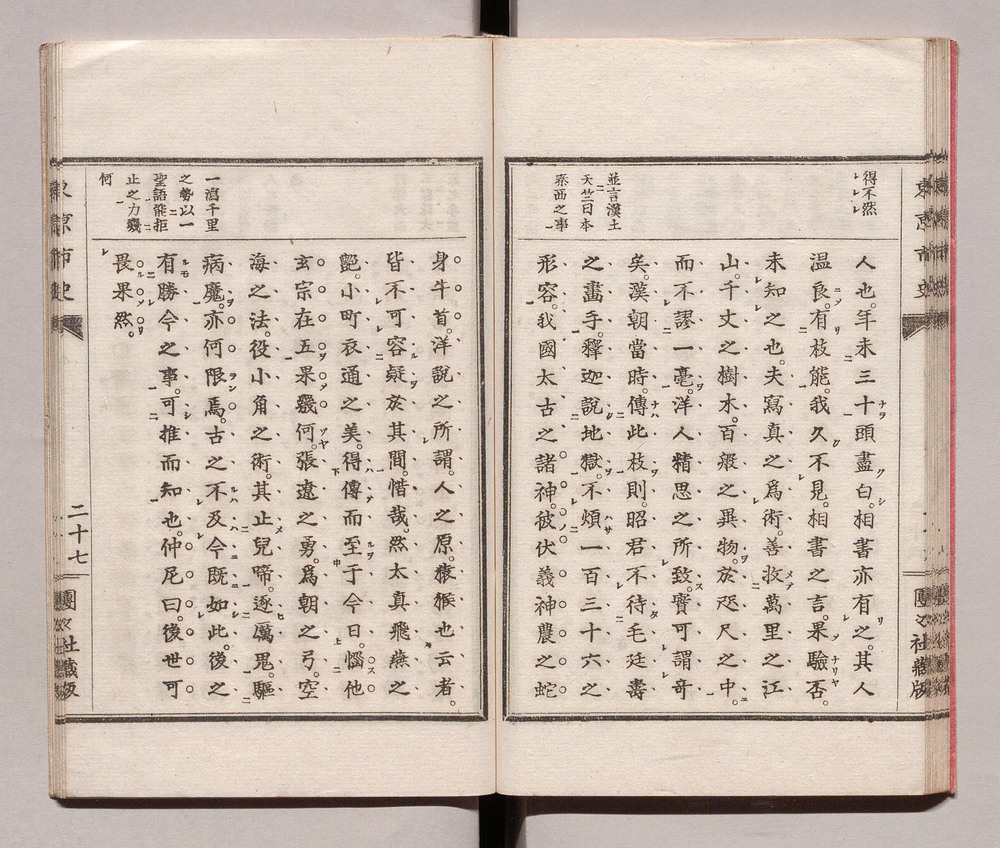 得不然
並言漢土
天竺日本
泰西之事
人也。年未三十頭盡白。相書亦有之。其人
温良。有枝能。我久不見。相書之言。果驗否。
未知之也。夫寫真之爲術。善收萬里之江
山。千丈之樹木。百般之異物。於咫尺之中。
而不謬一毫。洋人精思之所致。實可謂奇
矣。漢朝當時。傳此枝則。昭君不待毛延壽
之畫手。釋迦說地獄。不煩一百三十六之
形容。我國太古之諸神。彼伏羲神農之蛇
一瀉千里
之勢以一
聖語能拒
止之力幾
何
身牛首。洋說之所謂。人之原。猿猴也云者。
皆不可容疑於其間。惜哉。然太真飛燕之
艶。小町衣通之美。得傳而至于今日。惱他
玄宗在五果幾何。張遼之勇。爲朝之弓。空
海之法。役小角之術。其止兒啼。逐厲鬼。驅
病魔。亦何限焉。古之不及今既如此。後之
有勝今之事。可推而知也。仲尼曰。後世可
畏果然。
二十七
團々社藏版
團々社藏版